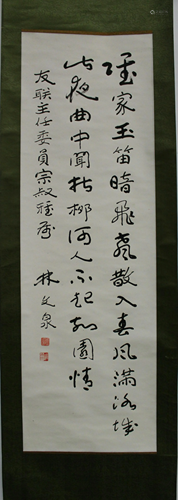 誰家玉笛暗飛聲散入春風滿洛城
此夜曲中聞折柳何人不起故園情
友联主任委員宗叔雅屬
林文泉